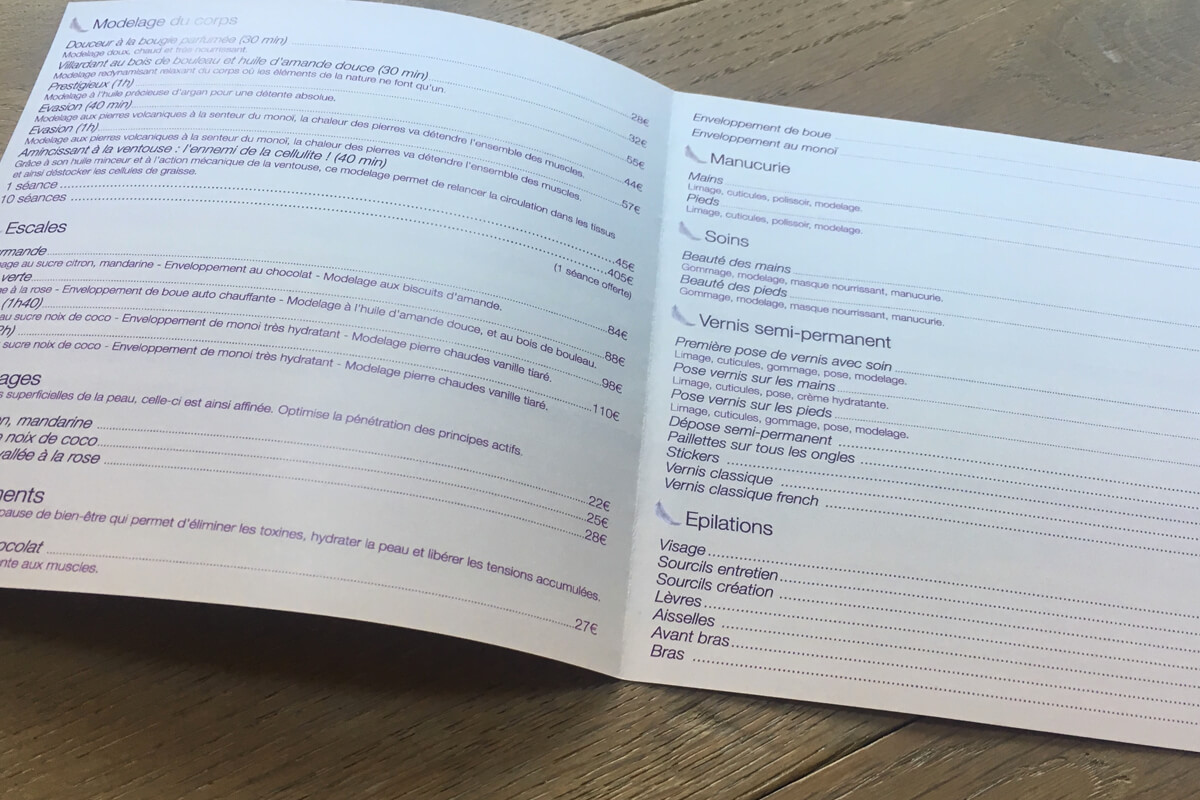 Modelage du corps
Douceur à la bougie parfumée (30 min) 28€
Modelage doux, chaud et très nourrissant.
Villardant au bois de bouleau et huile d'amande douce (30 min) 32€
Modelage redynamisant relaxant du corps où les éléments de la nature ne font qu'un.
Prestigieux (1h) 55€
Modelage à l'huile précieuse d'argan pour une détente absolue.
Evasion (40 min) 44€
Modelage aux pierres volcaniques à la senteur du monoi, la chaleur des pierres va détendre l'ensemble des muscles.
Evasion (1h) 57€
Modelage aux pierres volcaniques à la senteur du monoi, la chaleur des pierres va détendre l'ensemble des muscles.
Amincissant à la ventouse : l'ennemi de la cellulite ! (40 min)
Grâce à son huile minceur et à l'action mécanique de la ventouse, ce modelage permet de relancer la circulation dans les tissus
et ainsi déstocker les cellules de graisse.
1 séance 45€
10 séances 405€
(1 séance offerte)
Escales
rmande 84€
age au sucre citron, mandarine - Enveloppement au chocolat - Modelage aux biscuits d'amande.
verte 88€
e à la rose - Enveloppement de boue auto chauffante - Modelage à l'huile d'amande douce, et au bois de bouleau.
(1h40) 98€
au sucre noix de coco - Enveloppement de monoi très hydratant - Modelage pierre chaudes vanille tiaré.
h) 110€
sucre noix de coco - Enveloppement de monoi très hydratant - Modelage pierre chaudes vanille tiaré.
ages
s superficielles de la peau, celle-ci est ainsi affinée. Optimise la pénétration des principes actifs.
n, mandarine 22€
noix de coco 25€
vallée à la rose 28€
ments
pause de bien-être qui permet d'éliminer les toxines, hydrater la peau et libérer les tensions accumulées.
ocolat 27€
nte aux muscles.
Enveloppement de boue
Enveloppement au monoi
Manucurie
Mains
Limage, cuticules, polissoir, modelage.
Pieds
Limage, cuticules, polissoir, modelage.
Soins
Beauté des mains
Gommage, modelage, masque nourrissant, manucurie.
Beauté des pieds
Gommage, modelage, masque nourrissant, manucurie.
Vernis semi-permanent
Première pose de vernis avec soin
Limage, cuticules, gommage, pose, modelage.
Pose vernis sur les mains
Limage, cuticules, pose, crème hydratante.
Pose vernis sur les pieds
Limage, cuticules, gommage, pose, modelage.
Dépose semi-permanent
Paillettes sur tous les ongles
Stickers
Vernis classique
Vernis classique french
Epilations
Visage
Sourcils entretien
Sourcils création
Lèvres
Aisselles
Avant bras
Bras